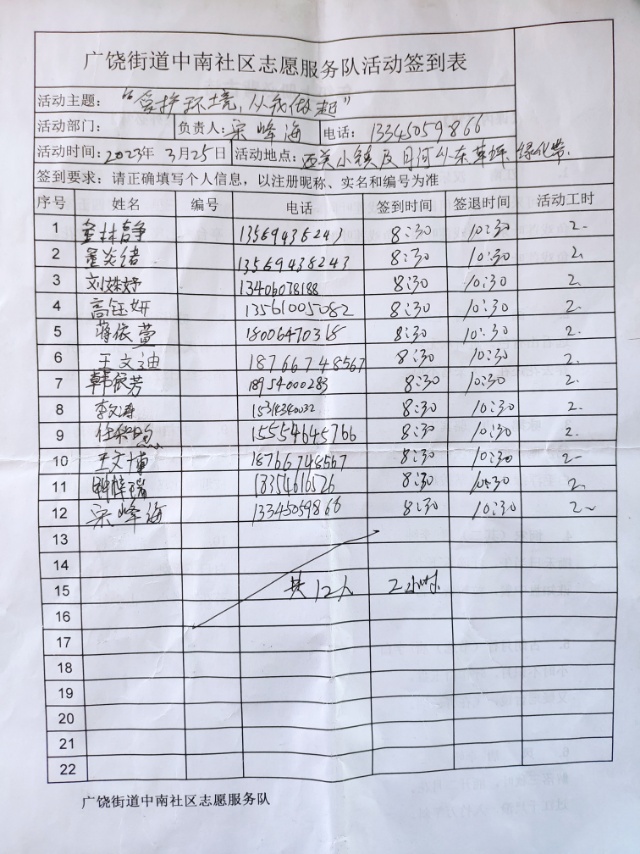 广饶街道中南社区志愿服务队活动签到表
活动主题：“爱护环境，从我做起”
活动部门： 负责人：宋峰海 电话：13345059866
活动时间：2023年3月25日 活动地点：西关小镇及月河以东草坪绿化带.
签到要求：请正确填写个人信息，以注册昵称、实名和编号为准
序号 姓名 编号 电话 签到时间 签退时间 活动工时
1 13569436243 8:30 10:30 2.
2 13569438243 8:30 10:30 2.
3 刘姝妤 13406078188 8:30 10:30 2.
4 高钰妍 13561005082 8:30 10:30 2.
5 蒋依萱 18006470368 8:30 10:30 2.
6 王文迪 18766748567 8:30 10:30 2.
7 韩俊芳 18954000283 8:30 10:30 2.
8 李文涛 8:30 10:30 2.
9 15554645766 8:30 10:30 2.
10 王文博 18766748567 8:30 10:30 2.
11 18354616526 8:30 10:30 2.
12 宋峰海 13345059866 8:30 10:30 2.
13
14
15 共12人 2小时
16
17
18
19
20
21
22
广饶街道中南社区志愿服务队